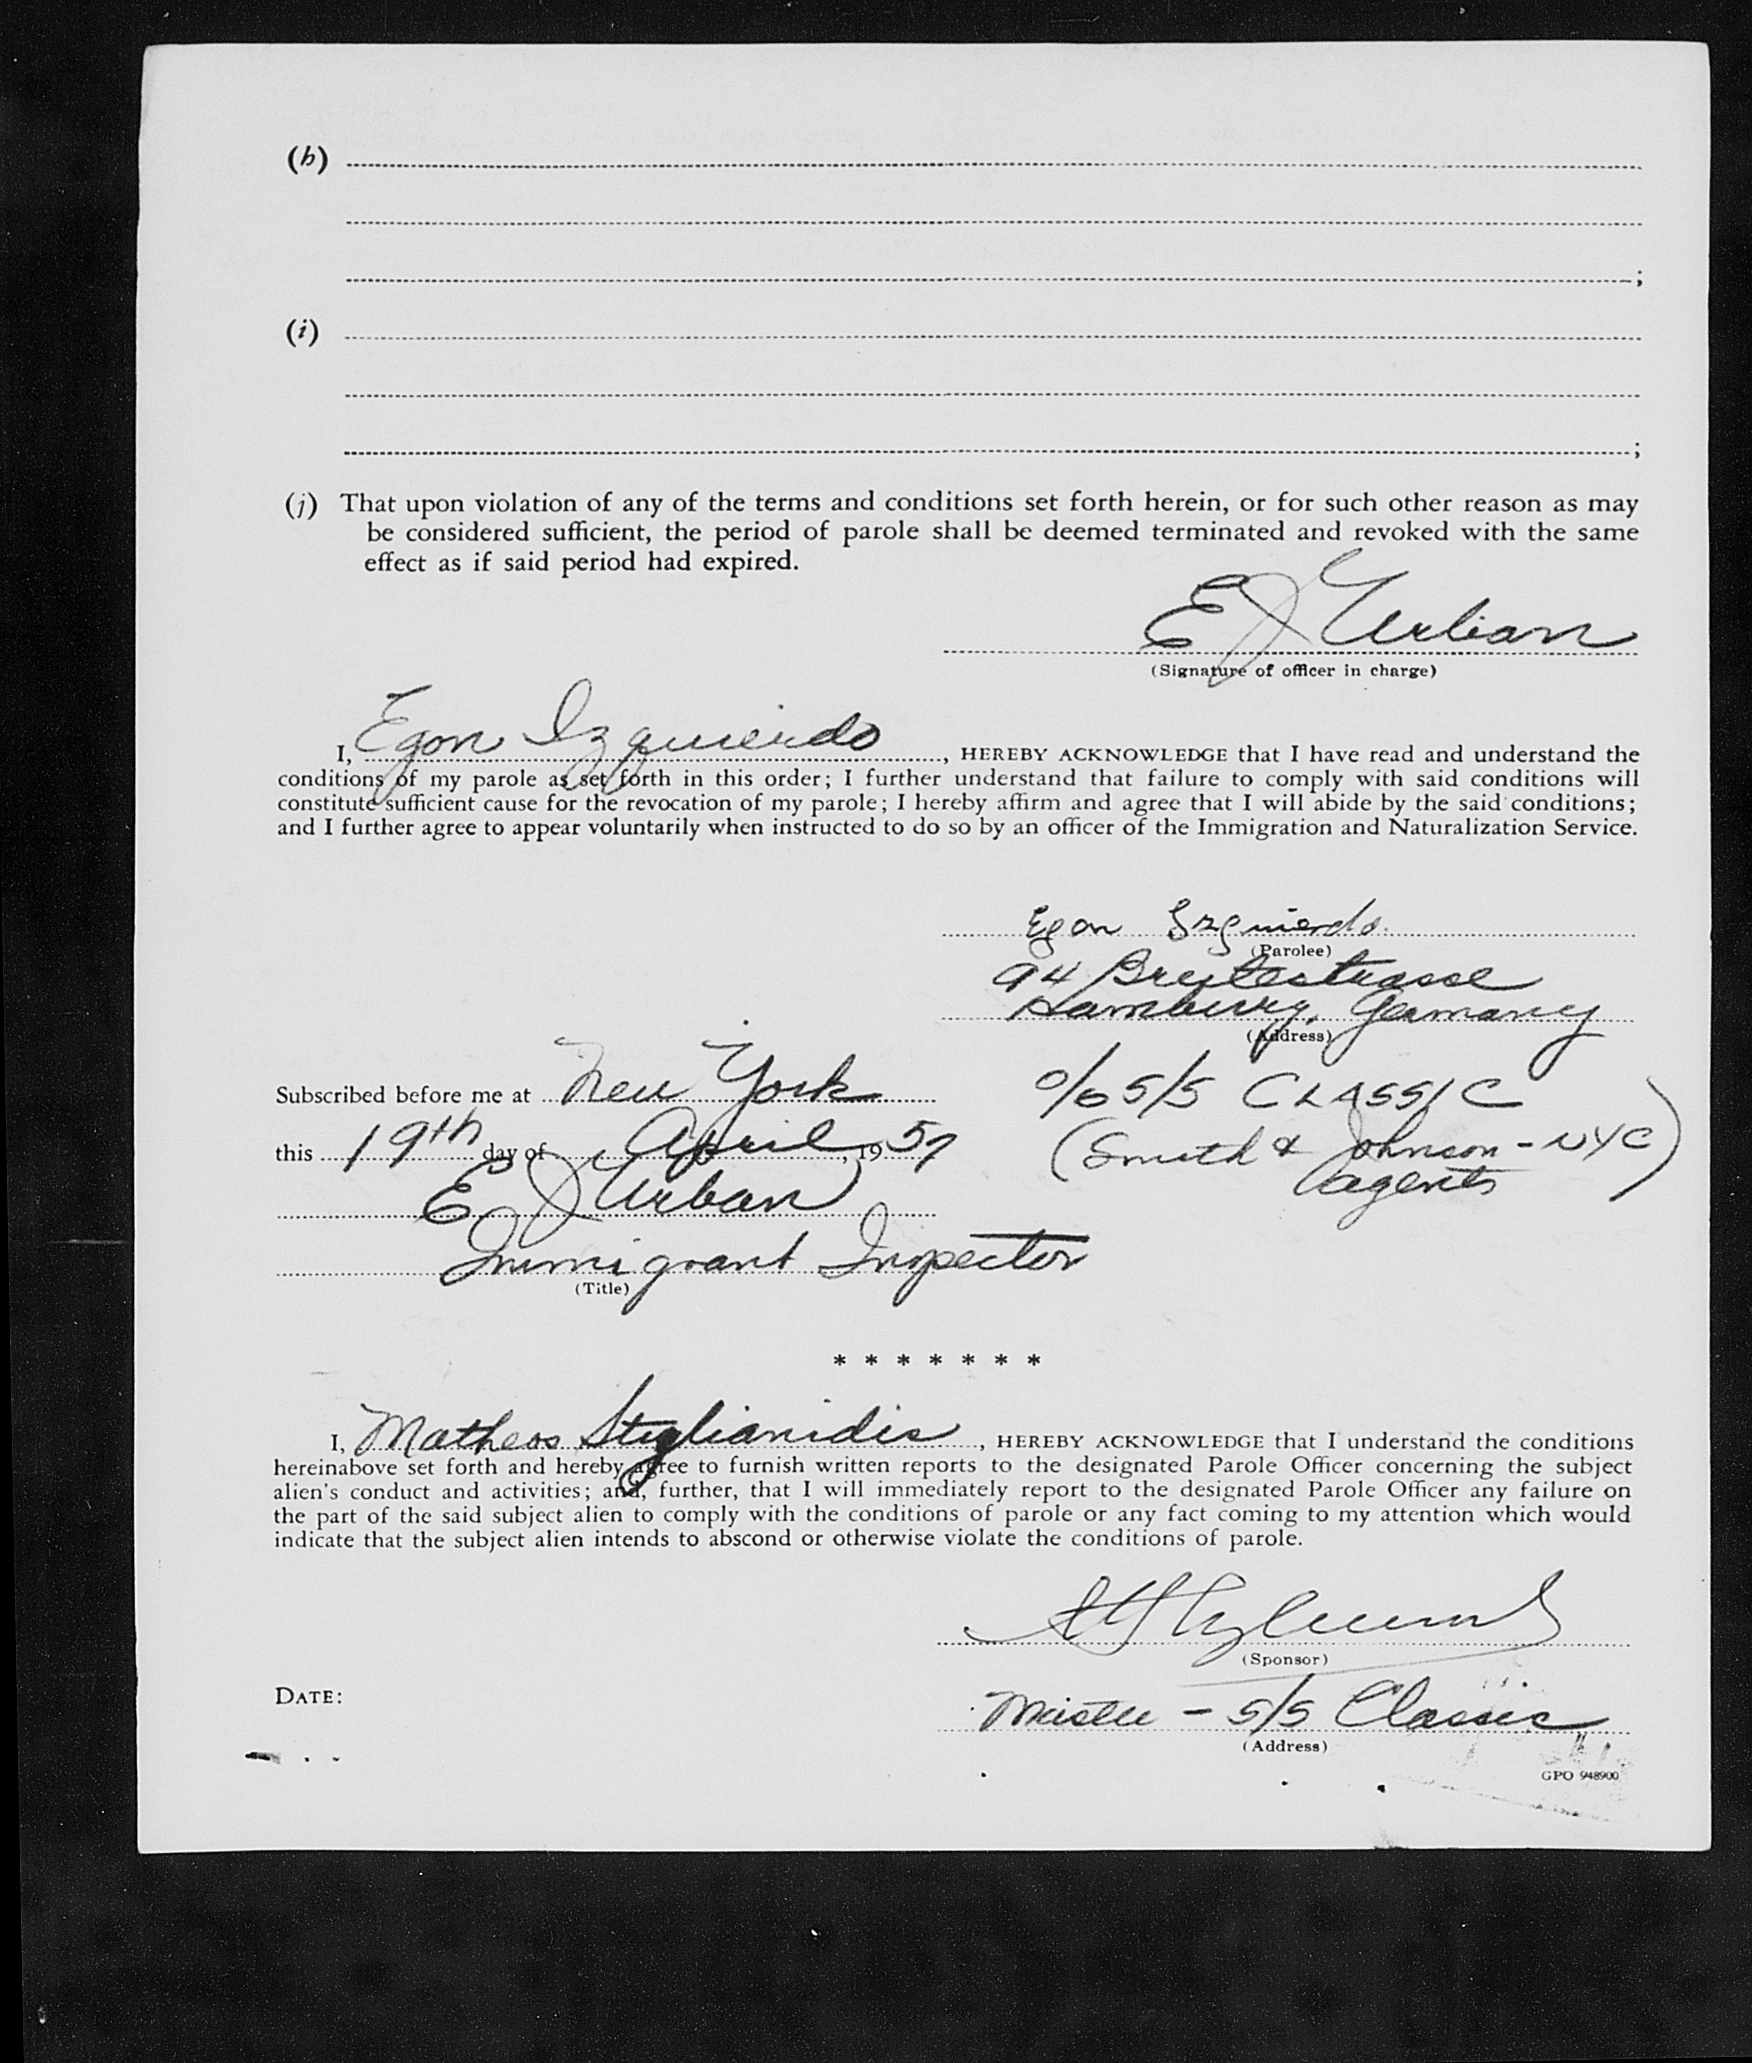 (h)
;
(i)
;
(j) That upon violation of any of the terms and conditions set forth herein, or for such other reason as may
be considered sufficient, the period of parole shall be deemed terminated and revoked with the same
effect as if said period had expired.
E J Urban
(Signature of officer in charge)
I, Egon Izquierdo, HEREBY ACKNOWLEDGE that I have read and understand the
conditions of my parole as set forth in this order; I further understand that failure to comply with said conditions will
constitute sufficient cause for the revocation of my parole; I hereby affirm and agree that I will abide by the said conditions;
and I further agree to appear voluntarily when instructed to do so by an officer of the Immigration and Naturalization Service.
Egon Izquierdo
(Parolee)
94 Breitestrasse
Hamburg, Germany
(Address)
Subscribed before me at New York
c/o S/S CLASSIC
this 19th day of April, 1957
(Smith & Johnson - NYC
agents)
E J Urban
Immigrant Inspector
(Title)
* * * * * * *
I, Matheos Stiglianidis, HEREBY ACKNOWLEDGE that I understand the conditions
hereinabove set forth and hereby agree to furnish written reports to the designated Parole Officer concerning the subject
alien's conduct and activities; and, further, that I will immediately report to the designated Parole Officer any failure on
the part of the said subject alien to comply with the conditions of parole or any fact coming to my attention which would
indicate that the subject alien intends to abscond or otherwise violate the conditions of parole.
(Sponsor)
DATE:
Master - S/S Classic
(Address)
GPO 948900